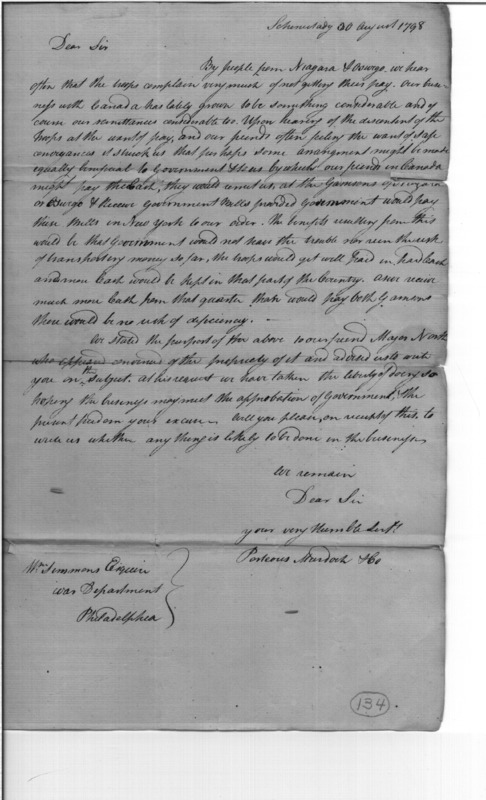 Schenectady 30 August 1798
Dear Sir
By people from Niagara & Oswego we hear
often that the troops complain very much of not getting their pay. Our busi-
ness with Canada has lately grown to be something considerable and of
course our remittances considerable too. Upon hearing of the discontent of the
troops at the want of pay, and our friends often feeling the want of safe
conveyances it struck us that perhaps some arrangement might be made
equally beneficial to Government & them by which our friends in Canada
might pay the Cash, they would remit us, at the Garrisons of Niagara
or Oswego & receive Government Bills provided Government would pay
these Bills in New York to our order. The benefits resulting from this
would be that Government would not have the trouble nor run the risk
of transporting money so far, the troops would get well paid in hard cash
and more Cash would be kept in that part of the Country. As we receive
much more Cash from that quarter than would pay both Garrisons
there would be no risk of deficiency. —
We stated the purport of the above to our friend Major North
who appeared convinced of the propriety of it and advised us to write
you on th subject. At his request we have taken the liberty of doing so
hoping the business may meet the approbation of Government, & the
present freedom your excuse. Will you please, on receipt of this, to
write us whether any thing is likely to be done in the business
We remain
Dear Sir
your very Humble Servts
Porteous Murdoch & Co
Wm Simmons Esquire
War Department
Philadelphia
134